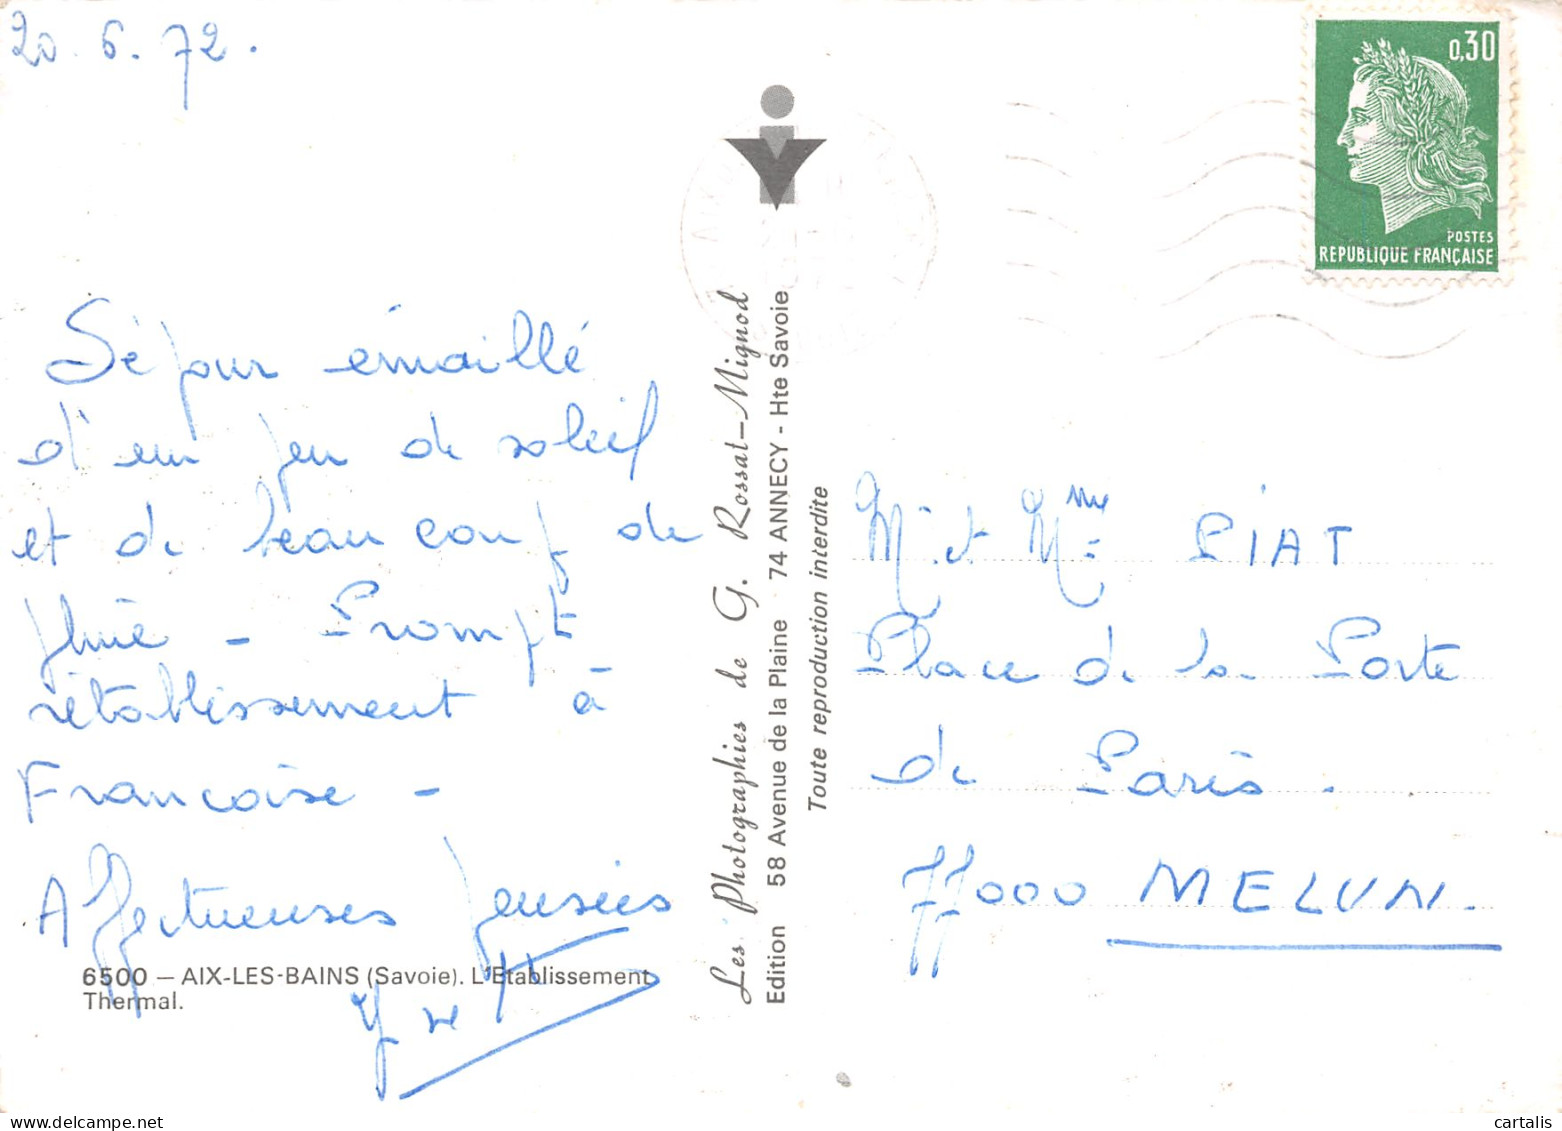 20.6.72.
Séjour émaillé
d'un peu de soleil
et de beaucoup de
pluie - Prompt
rétablissement à
Francoise -
Affectueuses pensées
6500 — AIX-LES-BAINS (Savoie). L'Etablissement
Thermal.
Les Photographies de G. Rossat-Mignod
Edition 58 Avenue de la Plaine 74 ANNECY - Hte Savoie
Toute reproduction interdite
0,30
POSTES
REPUBLIQUE FRANÇAISE
M. et Mme PIAT
Place de la Porte
de Paris.
77000 MELUN.
cartalis